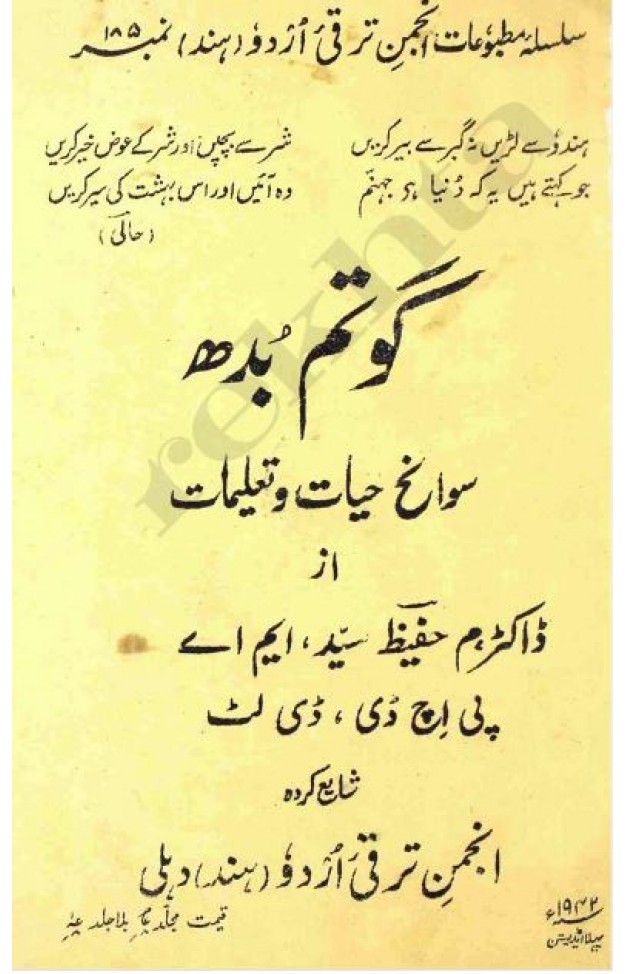 سلسلۂ مطبوعات انجمنِ ترقیٔ اُردو (ہند) نمبر ۱۸۵
ہندو سے لڑیں نہ گبر سے بیر کریں شر سے بچیں اور شر کے عوض خیر کریں
جو کہتے ہیں یہ کہ دُنیا ہی جہنّم وہ آئیں اور اس بہشت کی سیر کریں
(حالیؔ)
گوتم بُدھ
سوانح حیات و تعلیمات
از
ڈاکٹر م حفیظؔ سیّد، ایم اے
پی اچ ڈی، ڈی لٹ
شایع کردہ
انجمنِ ترقیٔ اُردو (ہند) دہلی
قیمت مجلد بلا جلد
۱۹۴۲ء
پہلا اڈیشن
rekhta